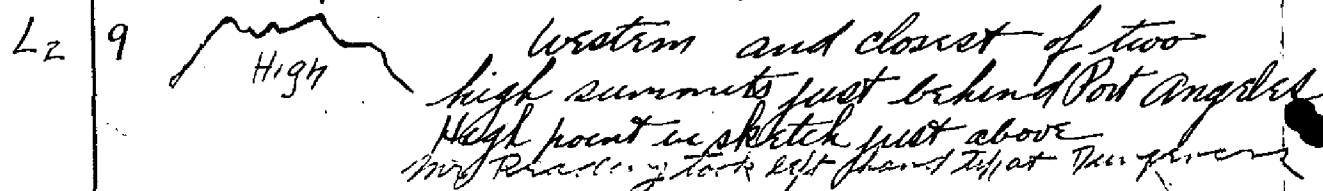 L2 9 High Western and closest of two
high summits just behind Port Angeles
High point in sketch just above
took left hand at